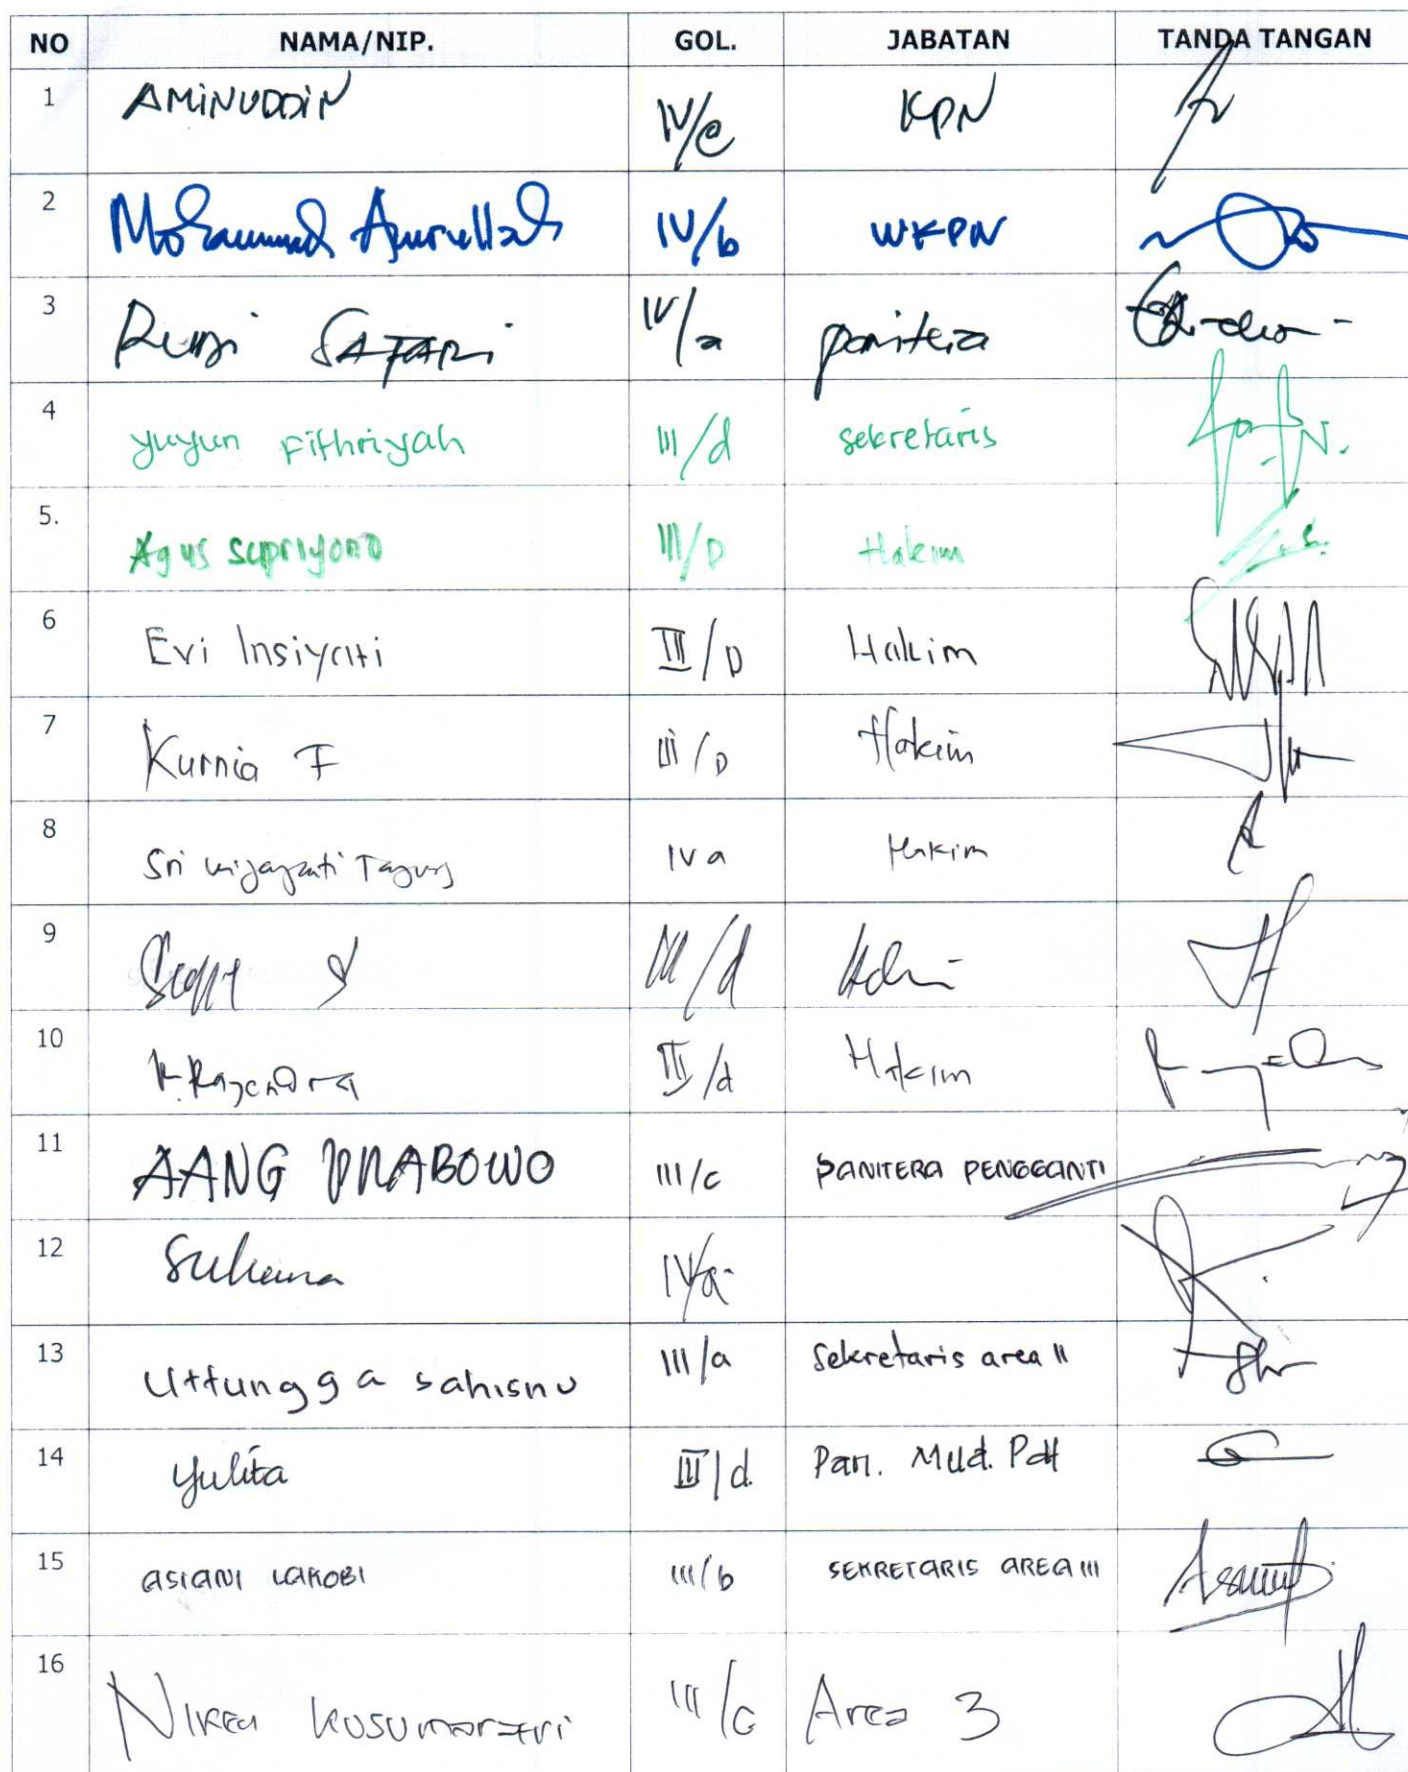 NO NAMA/NIP. GOL. JABATAN TANDA TANGAN
1 AMINUDDIN IV/c KPN
2 Mohammad Amrullah IV/b WKPN
3 Rusdi SAFARI IV/a panitera
4 yuyun Fithriyah III/d sekretaris
5. Agus Supriyono III/D Hakim
6 Evi Insiyati III/D Hakim
7 Kurnia F III/D Hakim
8 Sri wijayanti Tanjung IV a Hakim
9 III/d
10 Rajendra III/d Hakim
11 AANG PRABOWO III/c PANITERA PENGGANTI
12 Suhana IV/a
13 Uttungga sahisnu III/a Sekretaris area II
14 Yulita III/d. Pan. Mud. PdH
15 ASIANI LAKOBI III/b SEKRETARIS AREA III
16 NIKEN KUSUMA III/c Area 3